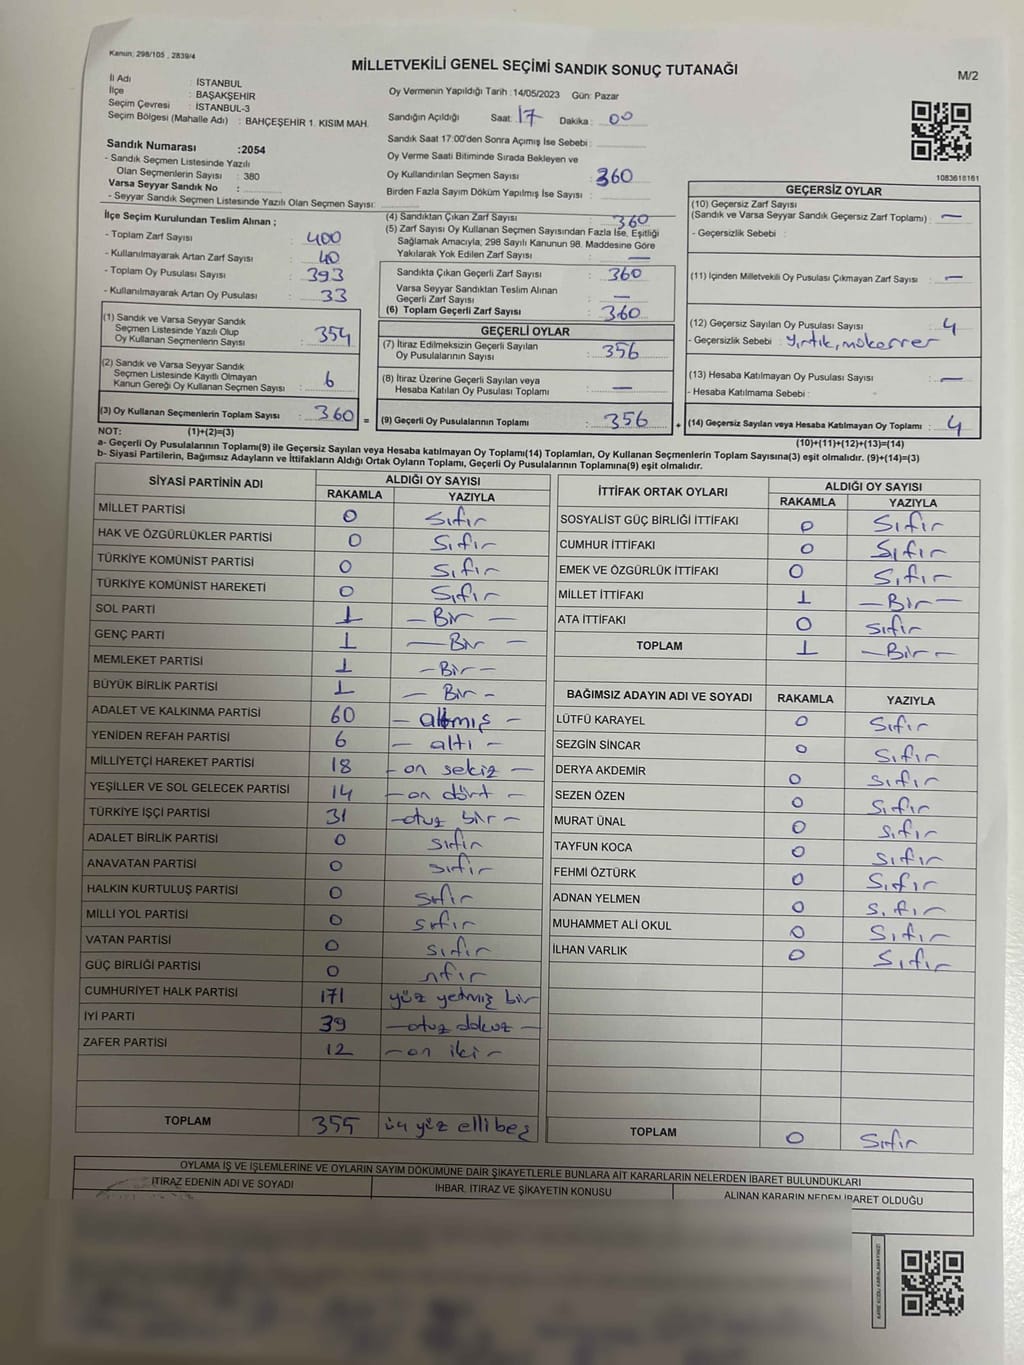 Kanun: 298/105 , 2839/4
MİLLETVEKİLİ GENEL SEÇİMİ SANDIK SONUÇ TUTANAĞI
M/2
İl Adı : İSTANBUL
İlçe : BAŞAKŞEHİR
Seçim Çevresi : İSTANBUL-3
Seçim Bölgesi (Mahalle Adı) : BAHÇEŞEHİR 1. KISIM MAH.
Oy Vermenin Yapıldığı Tarih :14/05/2023 Gün: Pazar
Sandığın Açıldığı Saat: 17 Dakika : 00
Sandık Saat 17:00'den Sonra Açımış İse Sebebi :
Oy Verme Saati Bitiminde Sırada Bekleyen ve
Oy Kullandırılan Seçmen Sayısı : 360
Birden Fazla Sayım Döküm Yapılmış İse Sayısı :
Sandık Numarası :2054
- Sandık Seçmen Listesinde Yazılı
Olan Seçmenlerin Sayısı : 380
Varsa Seyyar Sandık No :
- Seyyar Sandık Seçmen Listesinde Yazılı Olan Seçmen Sayısı:
1083618161
İlçe Seçim Kurulundan Teslim Alınan ;
- Toplam Zarf Sayısı : 400
- Kullanılmayarak Artan Zarf Sayısı : 40
- Toplam Oy Pusulası Sayısı : 393
- Kullanılmayarak Artan Oy Pusulası : 33
(1) Sandık ve Varsa Seyyar Sandık
Seçmen Listesinde Yazılı Olup
Oy Kullanan Seçmenlerin Sayısı : 354
(2) Sandık ve Varsa Seyyar Sandık
Seçmen Listesinde Kayıtlı Olmayan
Kanun Gereği Oy Kullanan Seçmen Sayısı : 6
(3) Oy Kullanan Seçmenlerin Toplam Sayısı : 360 =
(4) Sandıktan Çıkan Zarf Sayısı : 360
(5) Zarf Sayısı Oy Kullanan Seçmen Sayısından Fazla İse, Eşitliği
Sağlamak Amacıyla; 298 Sayılı Kanunun 98. Maddesine Göre
Yakılarak Yok Edilen Zarf Sayısı : —
Sandıkta Çıkan Geçerli Zarf Sayısı : 360
Varsa Seyyar Sandıktan Teslim Alınan
Geçerli Zarf Sayısı : —
(6) Toplam Geçerli Zarf Sayısı : 360
GEÇERLİ OYLAR
(7) İtiraz Edilmeksizin Geçerli Sayılan
Oy Pusulalarının Sayısı : 356
(8) İtiraz Üzerine Geçerli Sayılan veya
Hesaba Katılan Oy Pusulası Toplamı : —
(9) Geçerli Oy Pusulalarının Toplamı : 356 +
GEÇERSİZ OYLAR
(10) Geçersiz Zarf Sayısı
(Sandık ve Varsa Seyyar Sandık Geçersiz Zarf Toplamı) : —
- Geçersizlik Sebebi :
(11) İçinden Milletvekili Oy Pusulası Çıkmayan Zarf Sayısı : —
(12) Geçersiz Sayılan Oy Pusulası Sayısı : 4
- Geçersizlik Sebebi : Yırtık, mükerrer
(13) Hesaba Katılmayan Oy Pusulası Sayısı : —
- Hesaba Katılmama Sebebi :
(14) Geçersiz Sayılan veya Hesaba Katılmayan Oy Toplamı : 4
NOT: (1)+(2)=(3)
(10)+(11)+(12)+(13)=(14)
a- Geçerli Oy Pusulalarının Toplamı(9) ile Geçersiz Sayılan veya Hesaba katılmayan Oy Toplamı(14) Toplamları, Oy Kullanan Seçmenlerin Toplam Sayısına(3) eşit olmalıdır. (9)+(14)=(3)
b- Siyasi Partilerin, Bağımsız Adayların ve İttifakların Aldığı Ortak Oyların Toplamı, Geçerli Oy Pusulalarının Toplamına(9) eşit olmalıdır.
SİYASİ PARTİNİN ADI
ALDIĞI OY SAYISI
RAKAMLA YAZIYLA
MİLLET PARTİSİ 0 Sıfır
HAK VE ÖZGÜRLÜKLER PARTİSİ 0 Sıfır
TÜRKİYE KOMÜNİST PARTİSİ 0 Sıfır
TÜRKİYE KOMÜNİST HAREKETİ 0 Sıfır
SOL PARTİ 1 — Bir —
GENÇ PARTİ 1 — Bir —
MEMLEKET PARTİSİ 1 — Bir —
BÜYÜK BİRLİK PARTİSİ 1 — Bir —
ADALET VE KALKINMA PARTİSİ 60 — altmış —
YENİDEN REFAH PARTİSİ 6 — altı —
MİLLİYETÇİ HAREKET PARTİSİ 18 — on sekiz —
YEŞİLLER VE SOL GELECEK PARTİSİ 14 — on dört —
TÜRKİYE İŞÇİ PARTİSİ 31 — otuz bir —
ADALET BİRLİK PARTİSİ 0 sıfır
ANAVATAN PARTİSİ 0 sıfır
HALKIN KURTULUŞ PARTİSİ 0 sıfır
MİLLİ YOL PARTİSİ 0 sıfır
VATAN PARTİSİ 0 sıfır
GÜÇ BİRLİĞİ PARTİSİ 0 sıfır
CUMHURİYET HALK PARTİSİ 171 yüz yetmiş bir
İYİ PARTİ 39 — otuz dokuz —
ZAFER PARTİSİ 12 — on iki —
TOPLAM 355 üç yüz elli beş
İTTİFAK ORTAK OYLARI
ALDIĞI OY SAYISI
RAKAMLA YAZIYLA
SOSYALİST GÜÇ BİRLİĞİ İTTİFAKI 0 Sıfır
CUMHUR İTTİFAKI 0 Sıfır
EMEK VE ÖZGÜRLÜK İTTİFAKI 0 Sıfır
MİLLET İTTİFAKI 1 — Bir —
ATA İTTİFAKI 0 sıfır
TOPLAM 1 — Bir —
BAĞIMSIZ ADAYIN ADI VE SOYADI RAKAMLA YAZIYLA
LÜTFÜ KARAYEL 0 Sıfır
SEZGİN SİNCAR 0 Sıfır
DERYA AKDEMİR 0 Sıfır
SEZEN ÖZEN 0 Sıfır
MURAT ÜNAL 0 Sıfır
TAYFUN KOCA 0 Sıfır
FEHMİ ÖZTÜRK 0 Sıfır
ADNAN YELMEN 0 Sıfır
MUHAMMET ALİ OKUL 0 Sıfır
İLHAN VARLIK 0 Sıfır
TOPLAM 0 Sıfır
OYLAMA İŞ VE İŞLEMLERİNE VE OYLARIN SAYIM DÖKÜMÜNE DAİR ŞİKAYETLERLE BUNLARA AİT KARARLARIN NELERDEN İBARET BULUNDUKLARI
İTİRAZ EDENİN ADI VE SOYADI
İHBAR, İTİRAZ VE ŞİKAYETİN KONUSU
ALINAN KARARIN NEDEN İBARET OLDUĞU